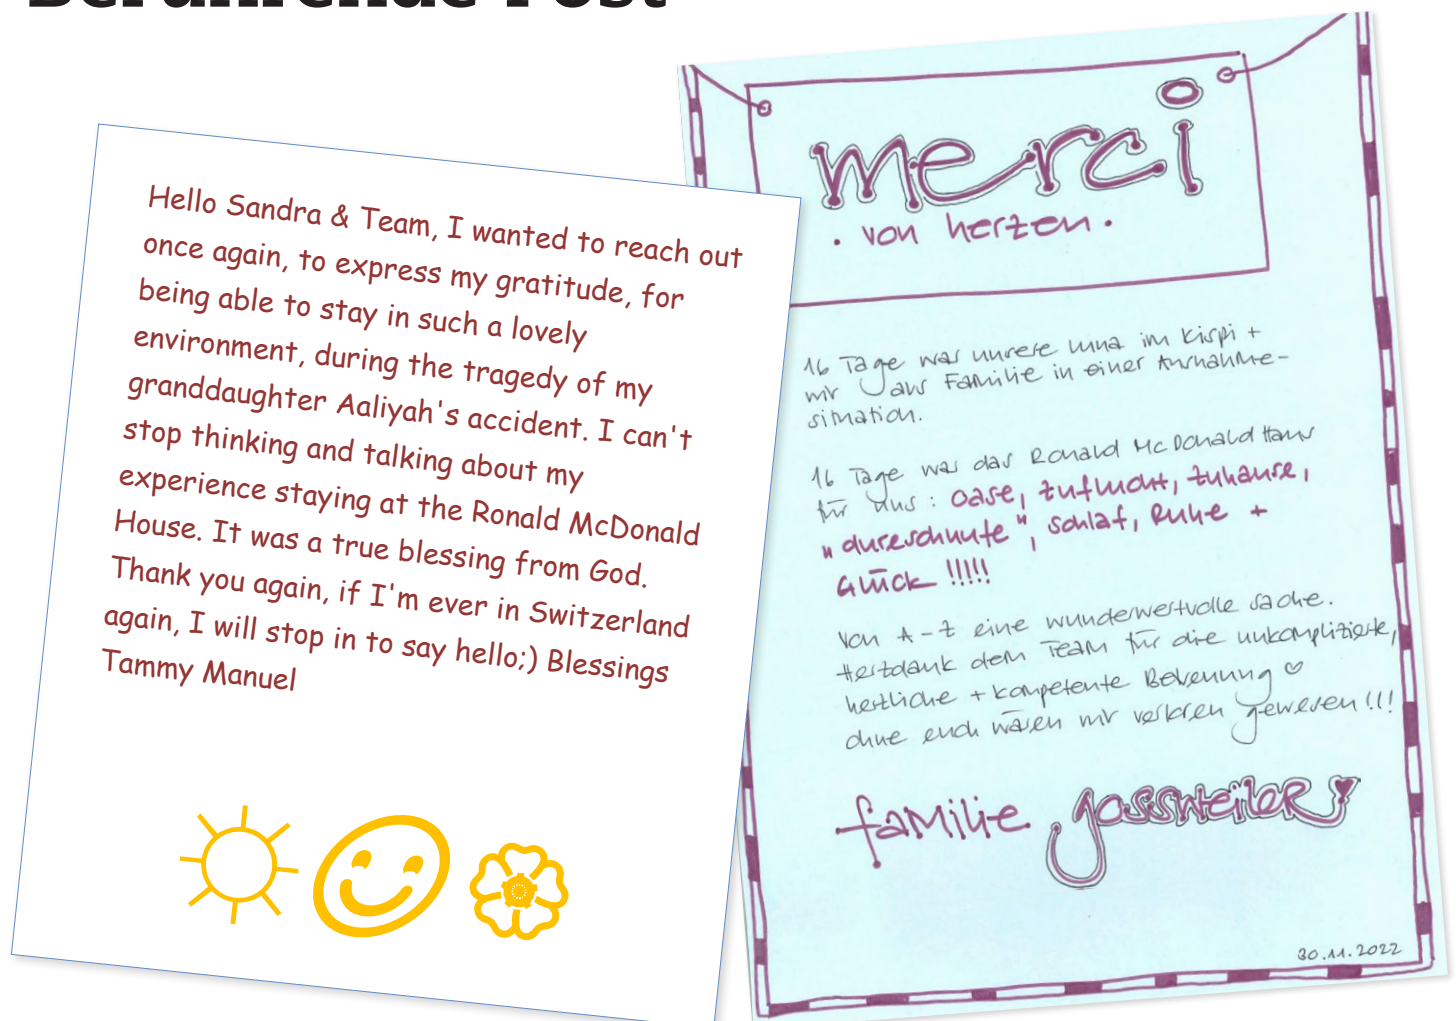 Berührende Post
Hello Sandra & Team, I wanted to reach out
once again, to express my gratitude, for
being able to stay in such a lovely
environment, during the tragedy of my
granddaughter Aaliyah's accident. I can't
stop thinking and talking about my
experience staying at the Ronald McDonald
House. It was a true blessing from God.
Thank you again, if I'm ever in Switzerland
again, I will stop in to say hello;) Blessings
Tammy Manuel
merci
. von herzen .
16 Tage war unsere Luna im Kispi +
wir als Familie in einer Ausnahme-
situation.
16 Tage war das Ronald McDonald Haus
für uns : Oase, Zuflucht, Zuhause,
"dureschnufe", Schlaf, Ruhe +
Glück !!!!!
Von A - Z eine wunderwertvolle Sache.
Herzdank dem Team für die unkomplizierte,
herzliche + kompetente Betreuung ♡
ohne euch wären wir verloren gewesen !!!
familie gossweiler
30.11.2022